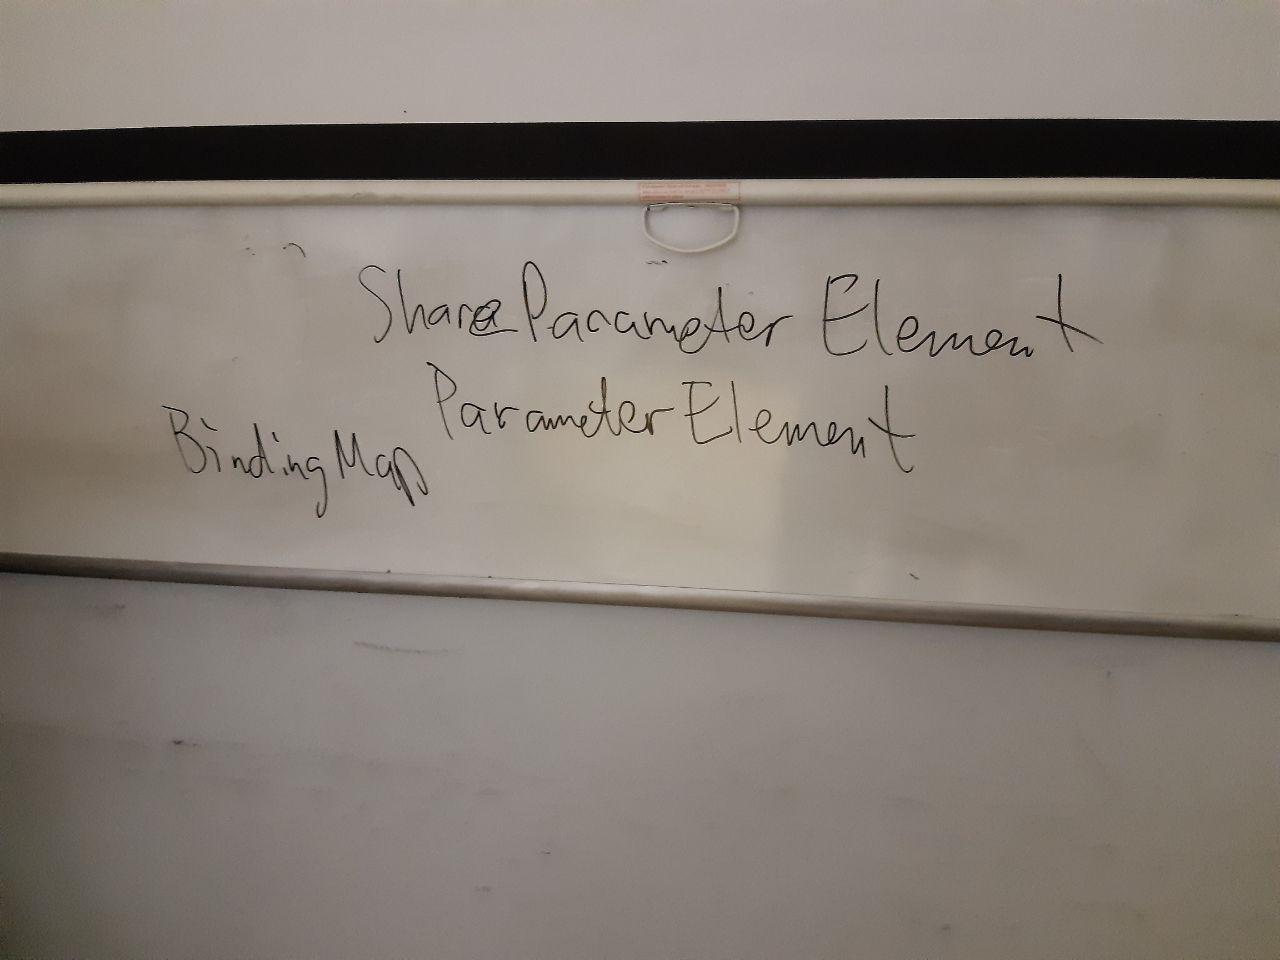 Share Parameter Element
Parameter Element
Binding Map